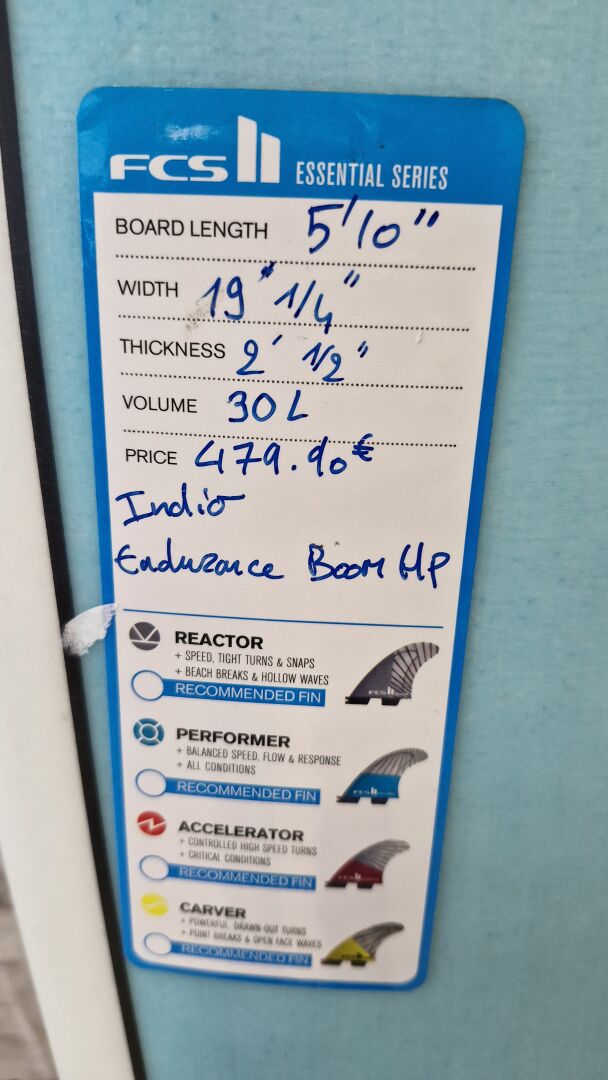 FCS II ESSENTIAL SERIES
BOARD LENGTH 5'10"
WIDTH 19" 1/4"
THICKNESS 2' 1/2"
VOLUME 30L
PRICE 479.90€
Indio
Endurance Boom HP
REACTOR
+ SPEED, TIGHT TURNS & SNAPS
+ BEACH BREAKS & HOLLOW WAVES
RECOMMENDED FIN
FCS II
PERFORMER
+ BALANCED SPEED, FLOW & RESPONSE
+ ALL CONDITIONS
RECOMMENDED FIN
FCS II
ACCELERATOR
+ CONTROLLED HIGH SPEED TURNS
+ CRITICAL CONDITIONS
RECOMMENDED FIN
CARVER
+ POWERFUL, DRAWN-OUT TURNS
+ POINT BREAKS & OPEN FACE WAVES
RECOMMENDED FIN